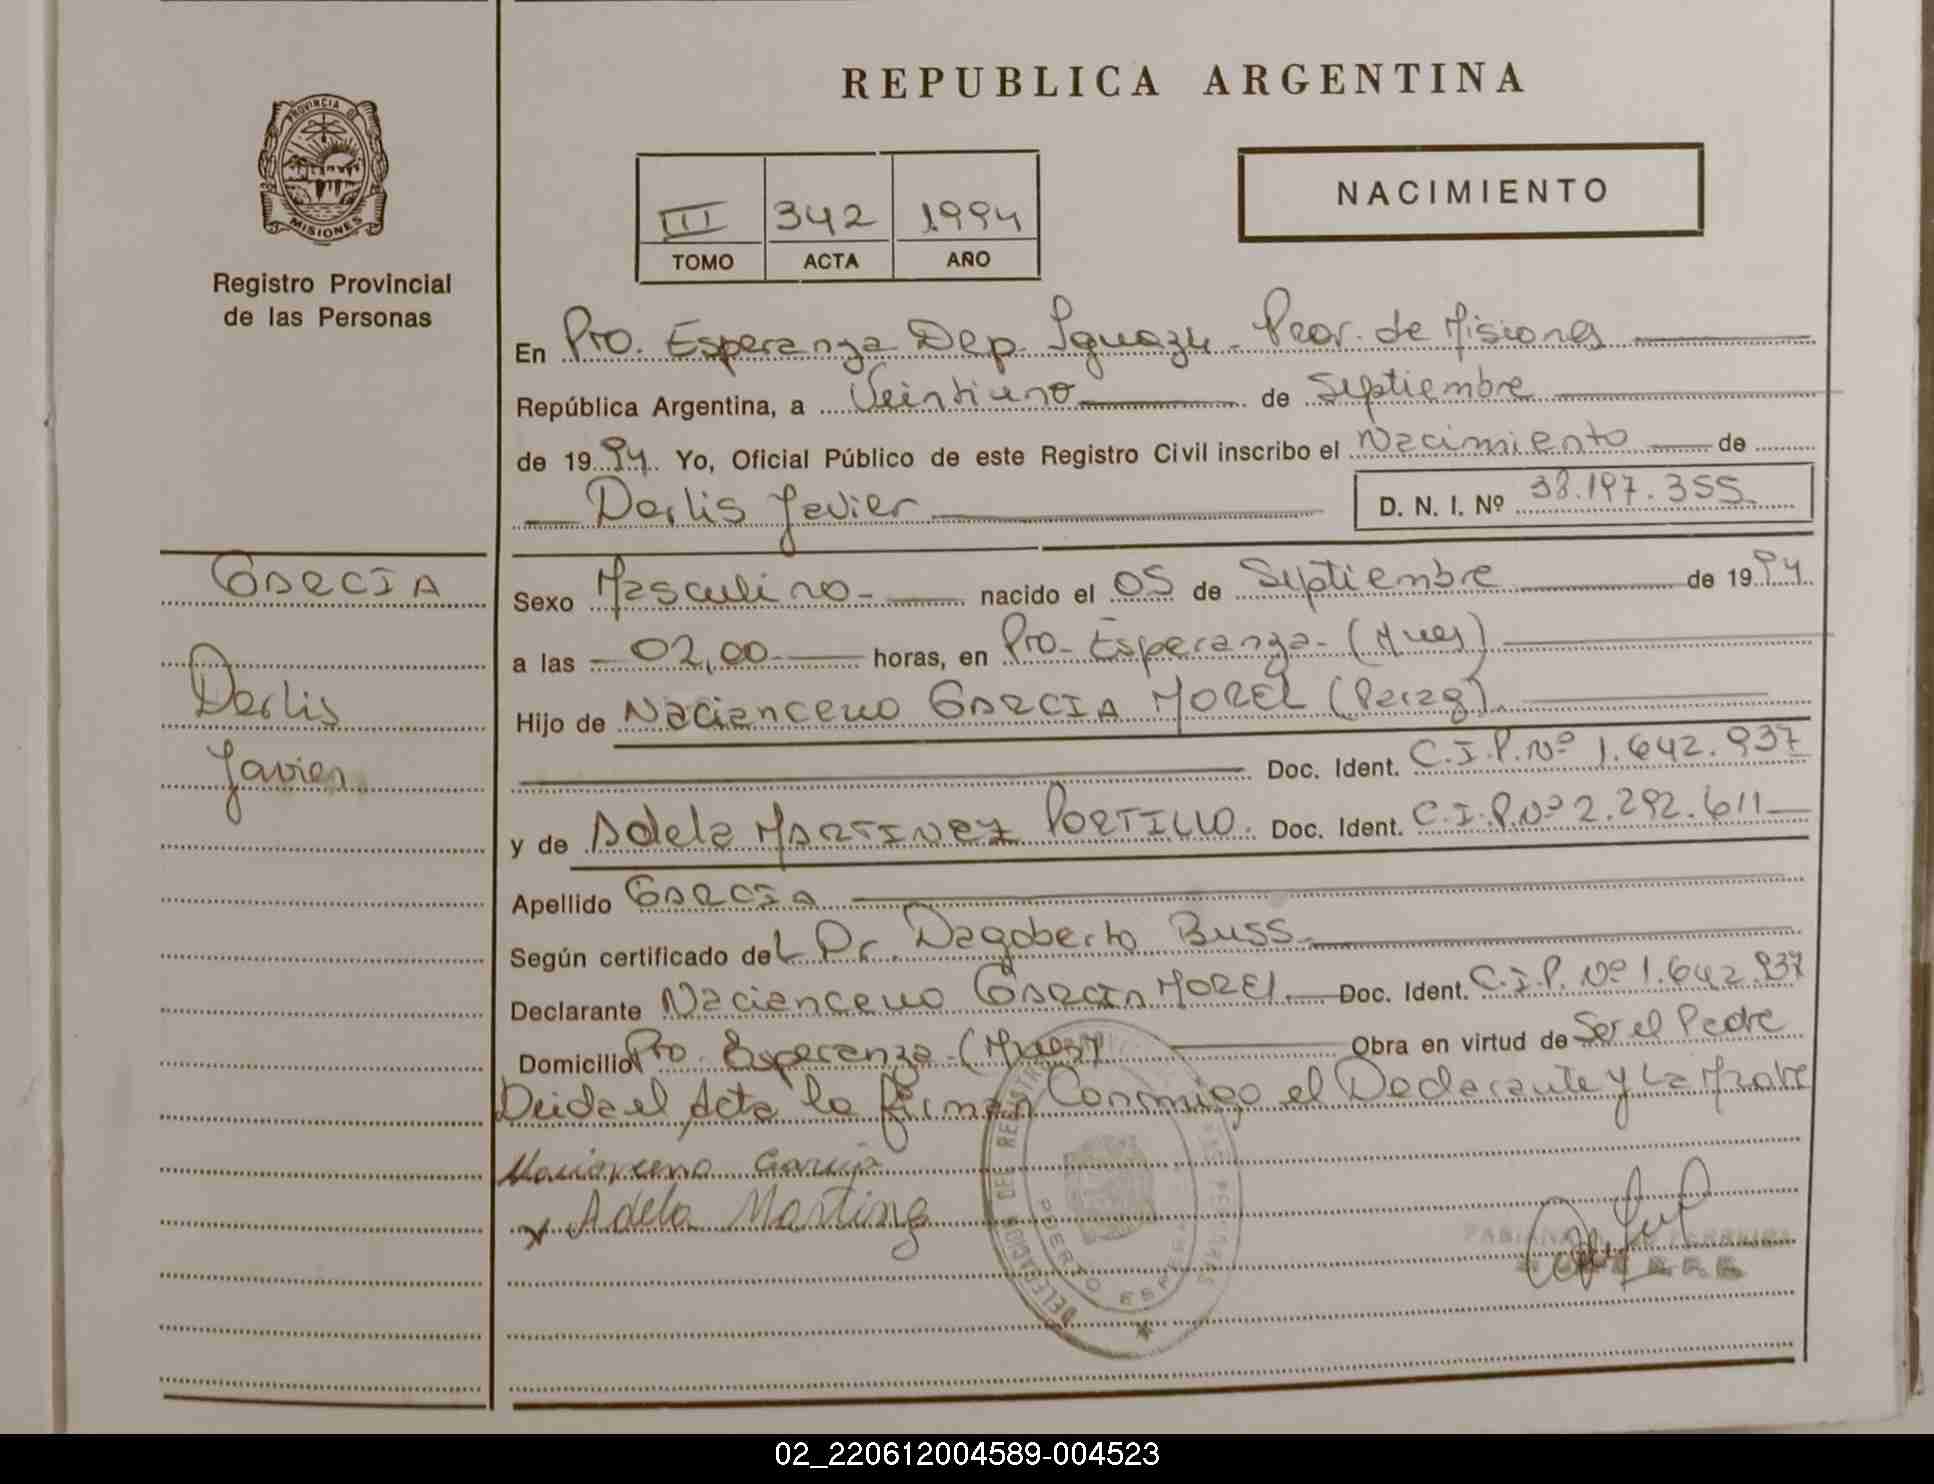 REPUBLICA ARGENTINA
PROVINCIA DE
MISIONES
Registro Provincial
de las Personas
III 342 1994
TOMO ACTA AÑO
NACIMIENTO
En Pto. Esperanza Dep. Iguazu - Prov. de Misiones
República Argentina, a Veintiuno de Septiembre
de 1994. Yo, Oficial Público de este Registro Civil inscribo el Nacimiento de
Darlis Javier D. N. I. Nº 38.197.355
GARCIA
Darlis
Javier
Sexo Masculino- nacido el 05 de Septiembre de 1994
a las 02,00 horas, en Pto- Esperanza-
Hijo de Naciancieno GARCIA MOREL (Parag)
Doc. Ident. C.I.P. Nº 1.642.937
y de Adela MARTINEZ PORTILLO. Doc. Ident. C.I.P. Nº 2.292.611
Apellido GARCIA
Según certificado del Dr. Dagoberto Buss-
Declarante GARCIA MOREL. Doc. Ident. C.I.P. Nº 1.642.937
Domicilio Pto. Esperanza- Obra en virtud de Ser el Padre
Leida el Acta la firman Conmigo el Declarante y La Madre
Garcia
x Adela Martinez
DELEGADO DEL REGISTRO
PUERTO ESPERANZA
02_220612004589-004523